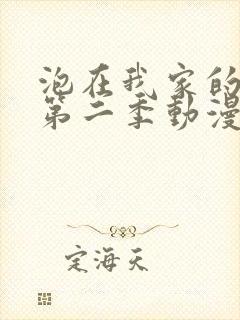 泡在我家的
第二季動漫
定海天